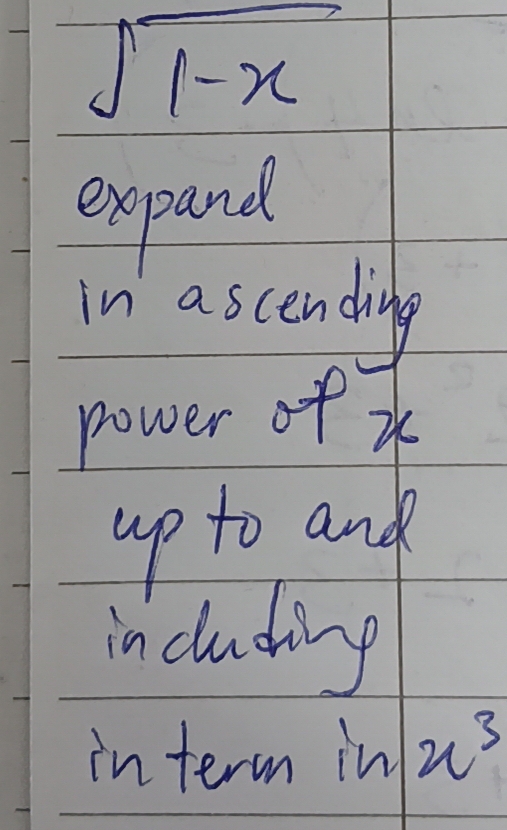 √1-x
expand
in ascending
power of x
up to and
including
in term in x³